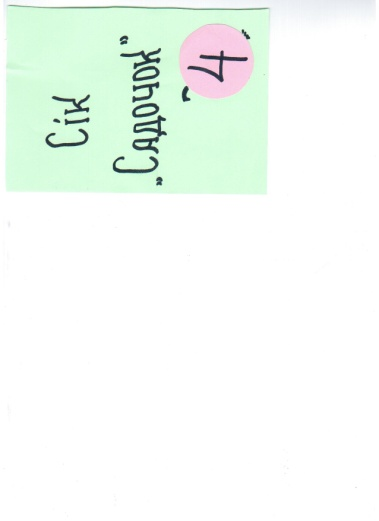 Сік
„Садочок"
4